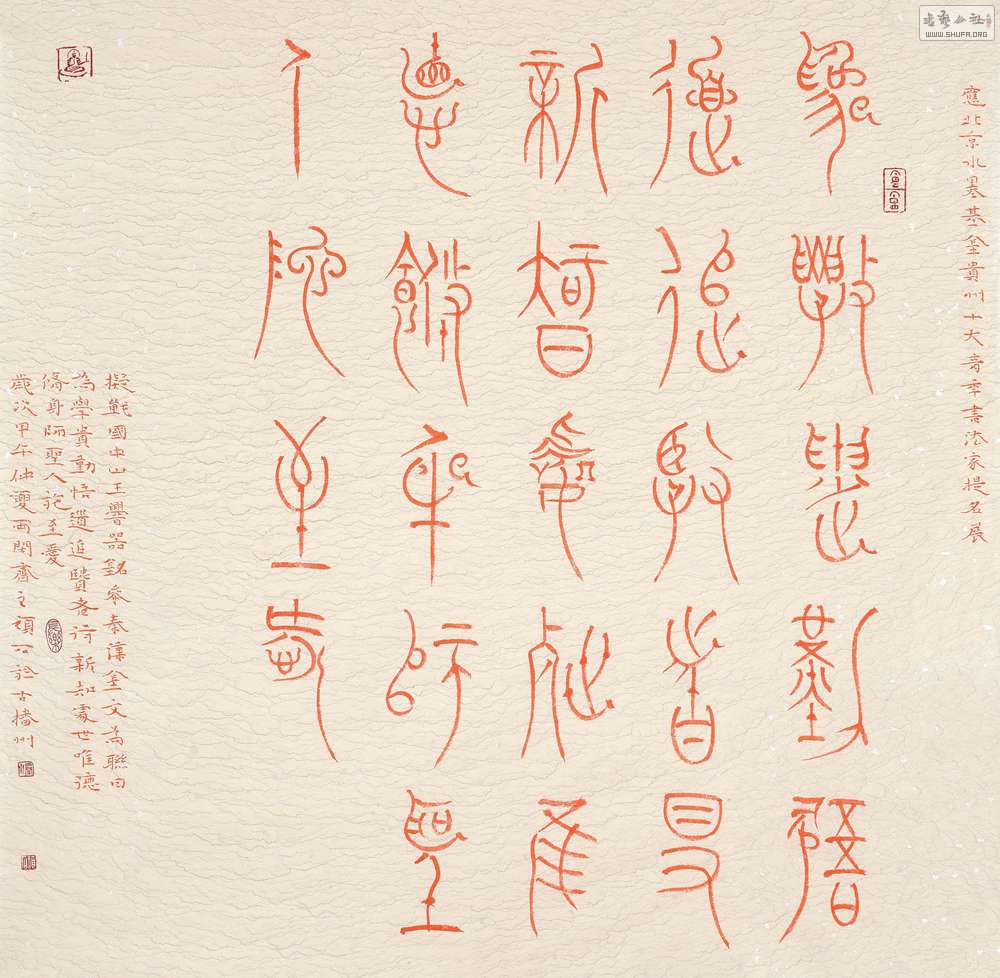 書藝公社
WWW.SHUFA.ORG
應北京水墨基金貴州十大書法家提名展
為學貴勤悟
道追賢者得
新智處世唯
德修身師聖
人施至愛
擬戰國中山王譽器銘參秦漢金文為聯曰
為學貴勤悟道追賢者得新知處世唯德
修身師聖人施至愛
歲次甲午仲夏西閑齋主公於古播州